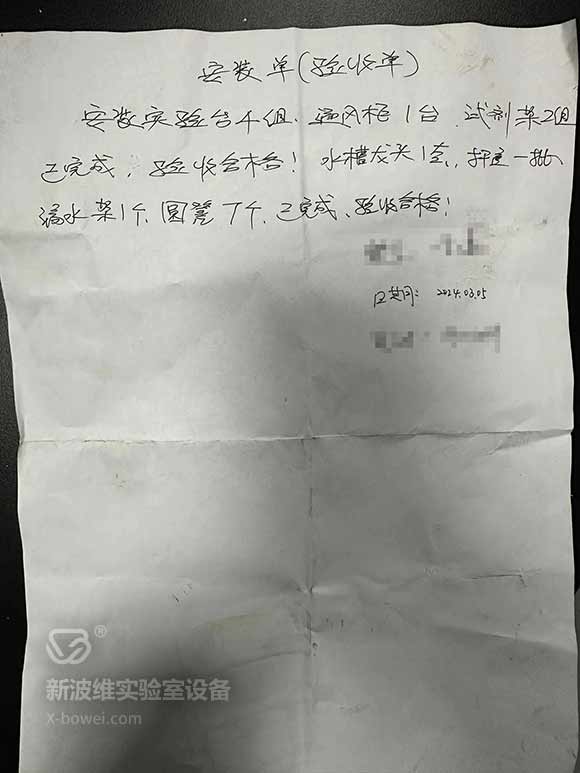 安装单(验收单)
安装实验台4组、通风柜1台、试剂架2组
已完成，验收合格！水槽龙头1套，插座一批
滴水架1个、圆凳7个、已完成、验收合格！
日期: 2024.03.05
新波维实验室设备
x-bowei.com